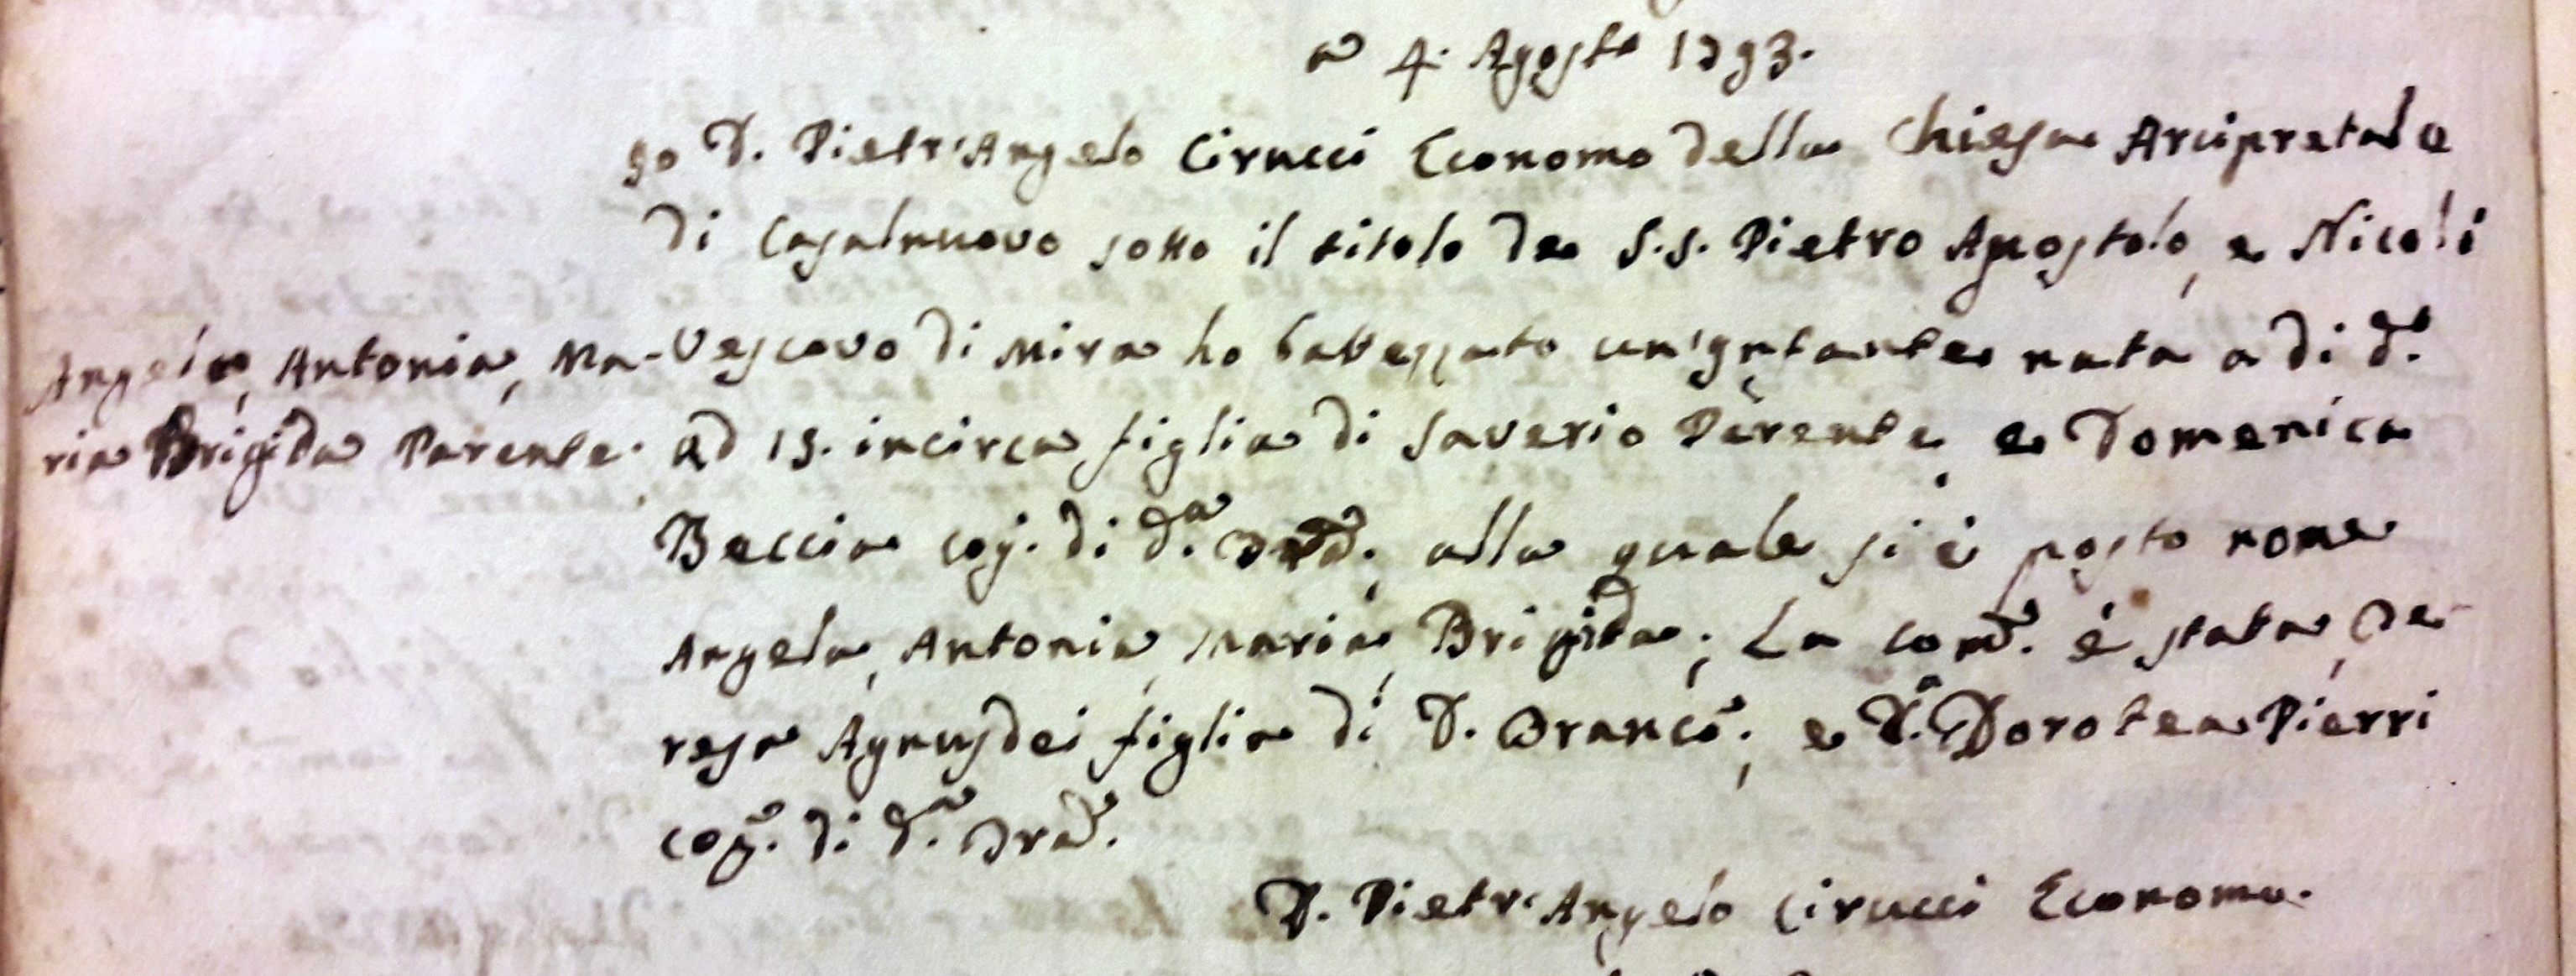 a 4. Agosto 1793.
Io D. Pietr'Angelo Cirucci Economo della Chiesa Arcipretale
di Casalnuovo sotto il titolo de S.S. Pietro Apostolo, e Nicoli
Angela, Antonia, Ma-
ria Brigida Parente.
Vescovo di Mira ho battezzato un'Infante nata a di d.o
ad 15. incirca figlia di Saverio Parente, e Domenica
Beccia cog. di d.a alla quale si è posto nome
Angela, Antonia, Maria, Brigida; La com.e è stata, Te-
resa Agnusdei figlia di D. Franc.o; e D.a Dorotea Pierri
cog. di d.a Tra.
D. Pietr'Angelo Cirucci Economo.